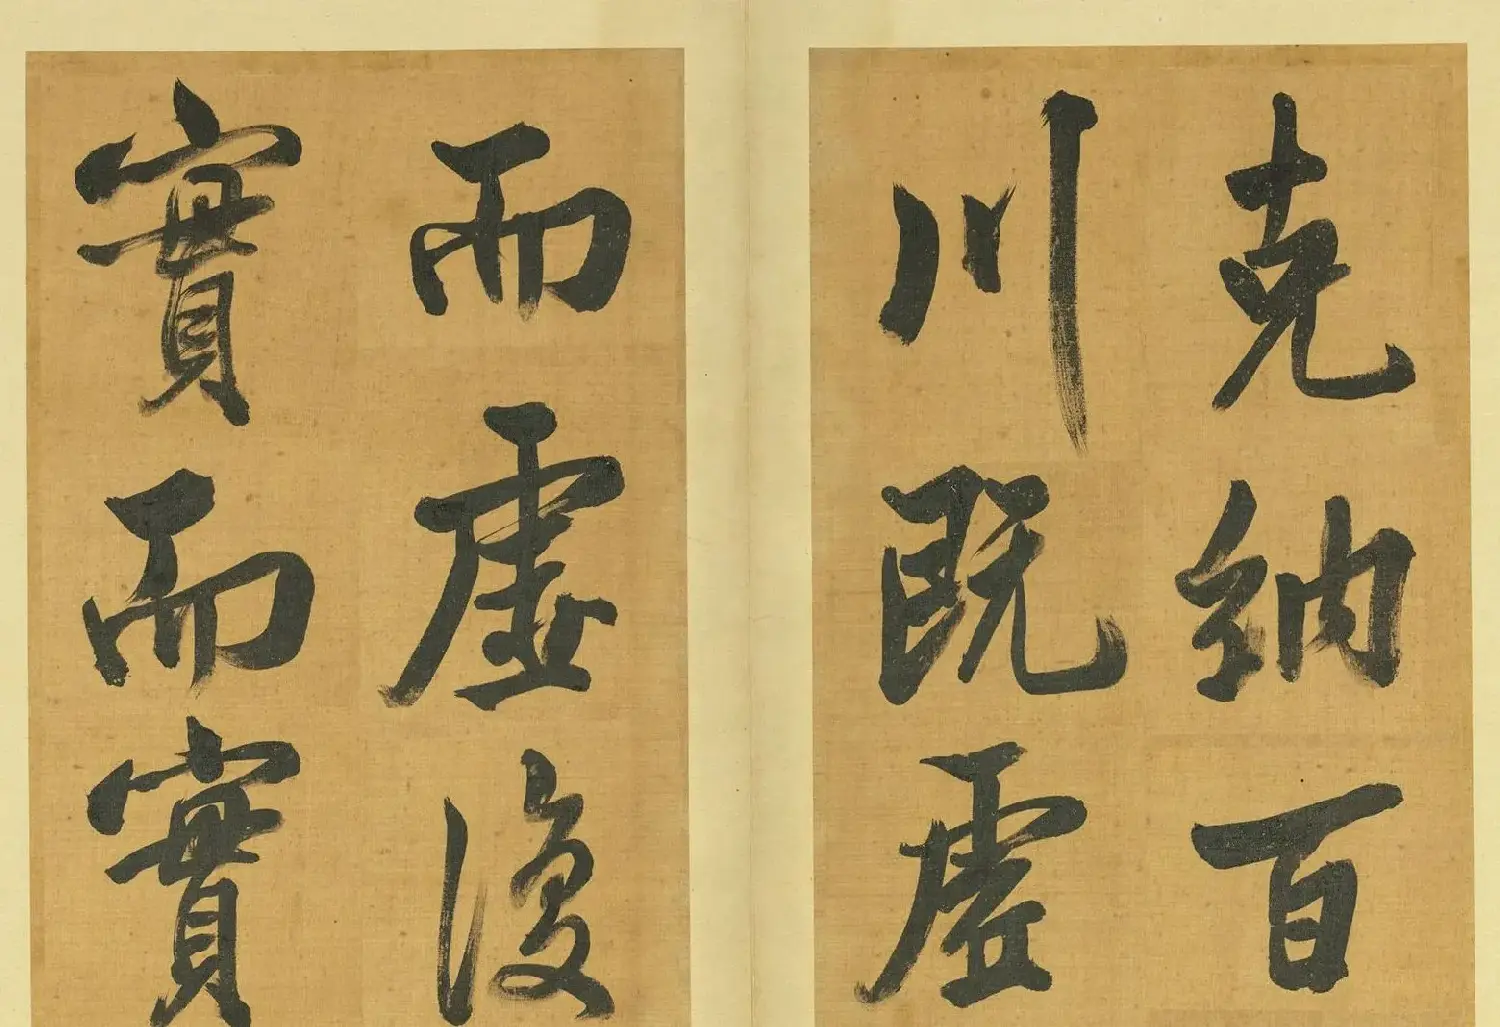 克納百
川既虛
而虛復
實而實